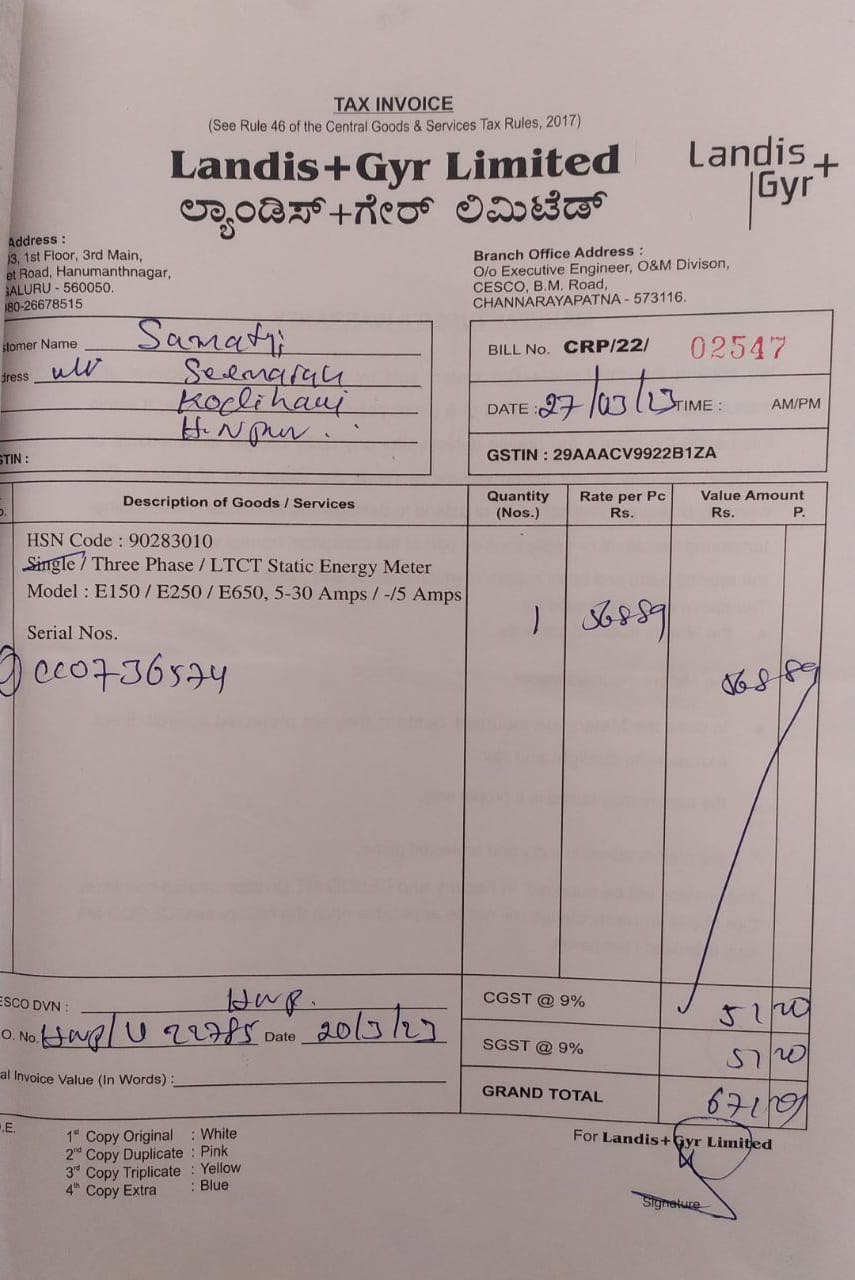 TAX INVOICE
(See Rule 46 of the Central Goods & Services Tax Rules, 2017)
Landis+Gyr Limited
ಲ್ಯಾಂಡಿಸ್+ಗೇರ್ ಲಿಮಿಟೆಡ್
Landis+
Gyr+
Address :
3, 1st Floor, 3rd Main,
et Road, Hanumanthnagar,
ALURU - 560050.
080-26678515
Branch Office Address :
O/o Executive Engineer, O&M Divison,
CESCO, B.M. Road,
CHANNARAYAPATNA - 573116.
stomer Name
dress
STIN :
BILL No. CRP/22/ 02547
DATE : 27/03/23 TIME : AM/PM
GSTIN : 29AAACV9922B1ZA
Description of Goods / Services
Quantity (Nos.)
Rate per Pc Rs.
Value Amount Rs. P.
HSN Code : 90283010
Single / Three Phase / LTCT Static Energy Meter
Model : E150 / E250 / E650, 5-30 Amps / -/5 Amps
1 568 89
Serial Nos.
CC0736574
568 89
ESCO DVN : HNP.
O. No. HNP/U 22785 Date 20/3/23
al Invoice Value (In Words) :
CGST @ 9% 51 20
SGST @ 9% 51 20
GRAND TOTAL 671 29
O.E.
1st Copy Original : White
2nd Copy Duplicate : Pink
3rd Copy Triplicate : Yellow
4th Copy Extra : Blue
For Landis+Gyr Limited
Signature